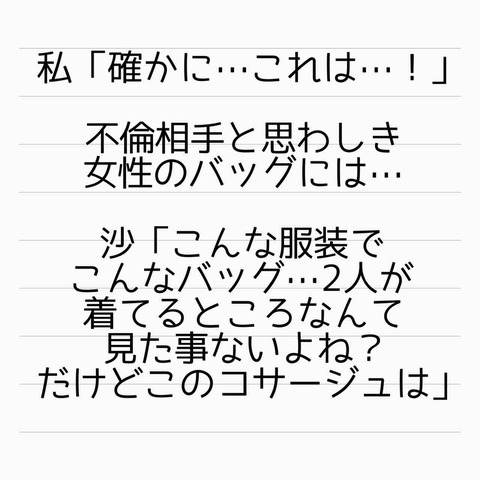 私「確かに…これは…！」
不倫相手と思わしき
女性のバッグには…
沙「こんな服装で
こんなバッグ…2人が
着てるところなんて
見た事ないよね？
だけどこのコサージュは」